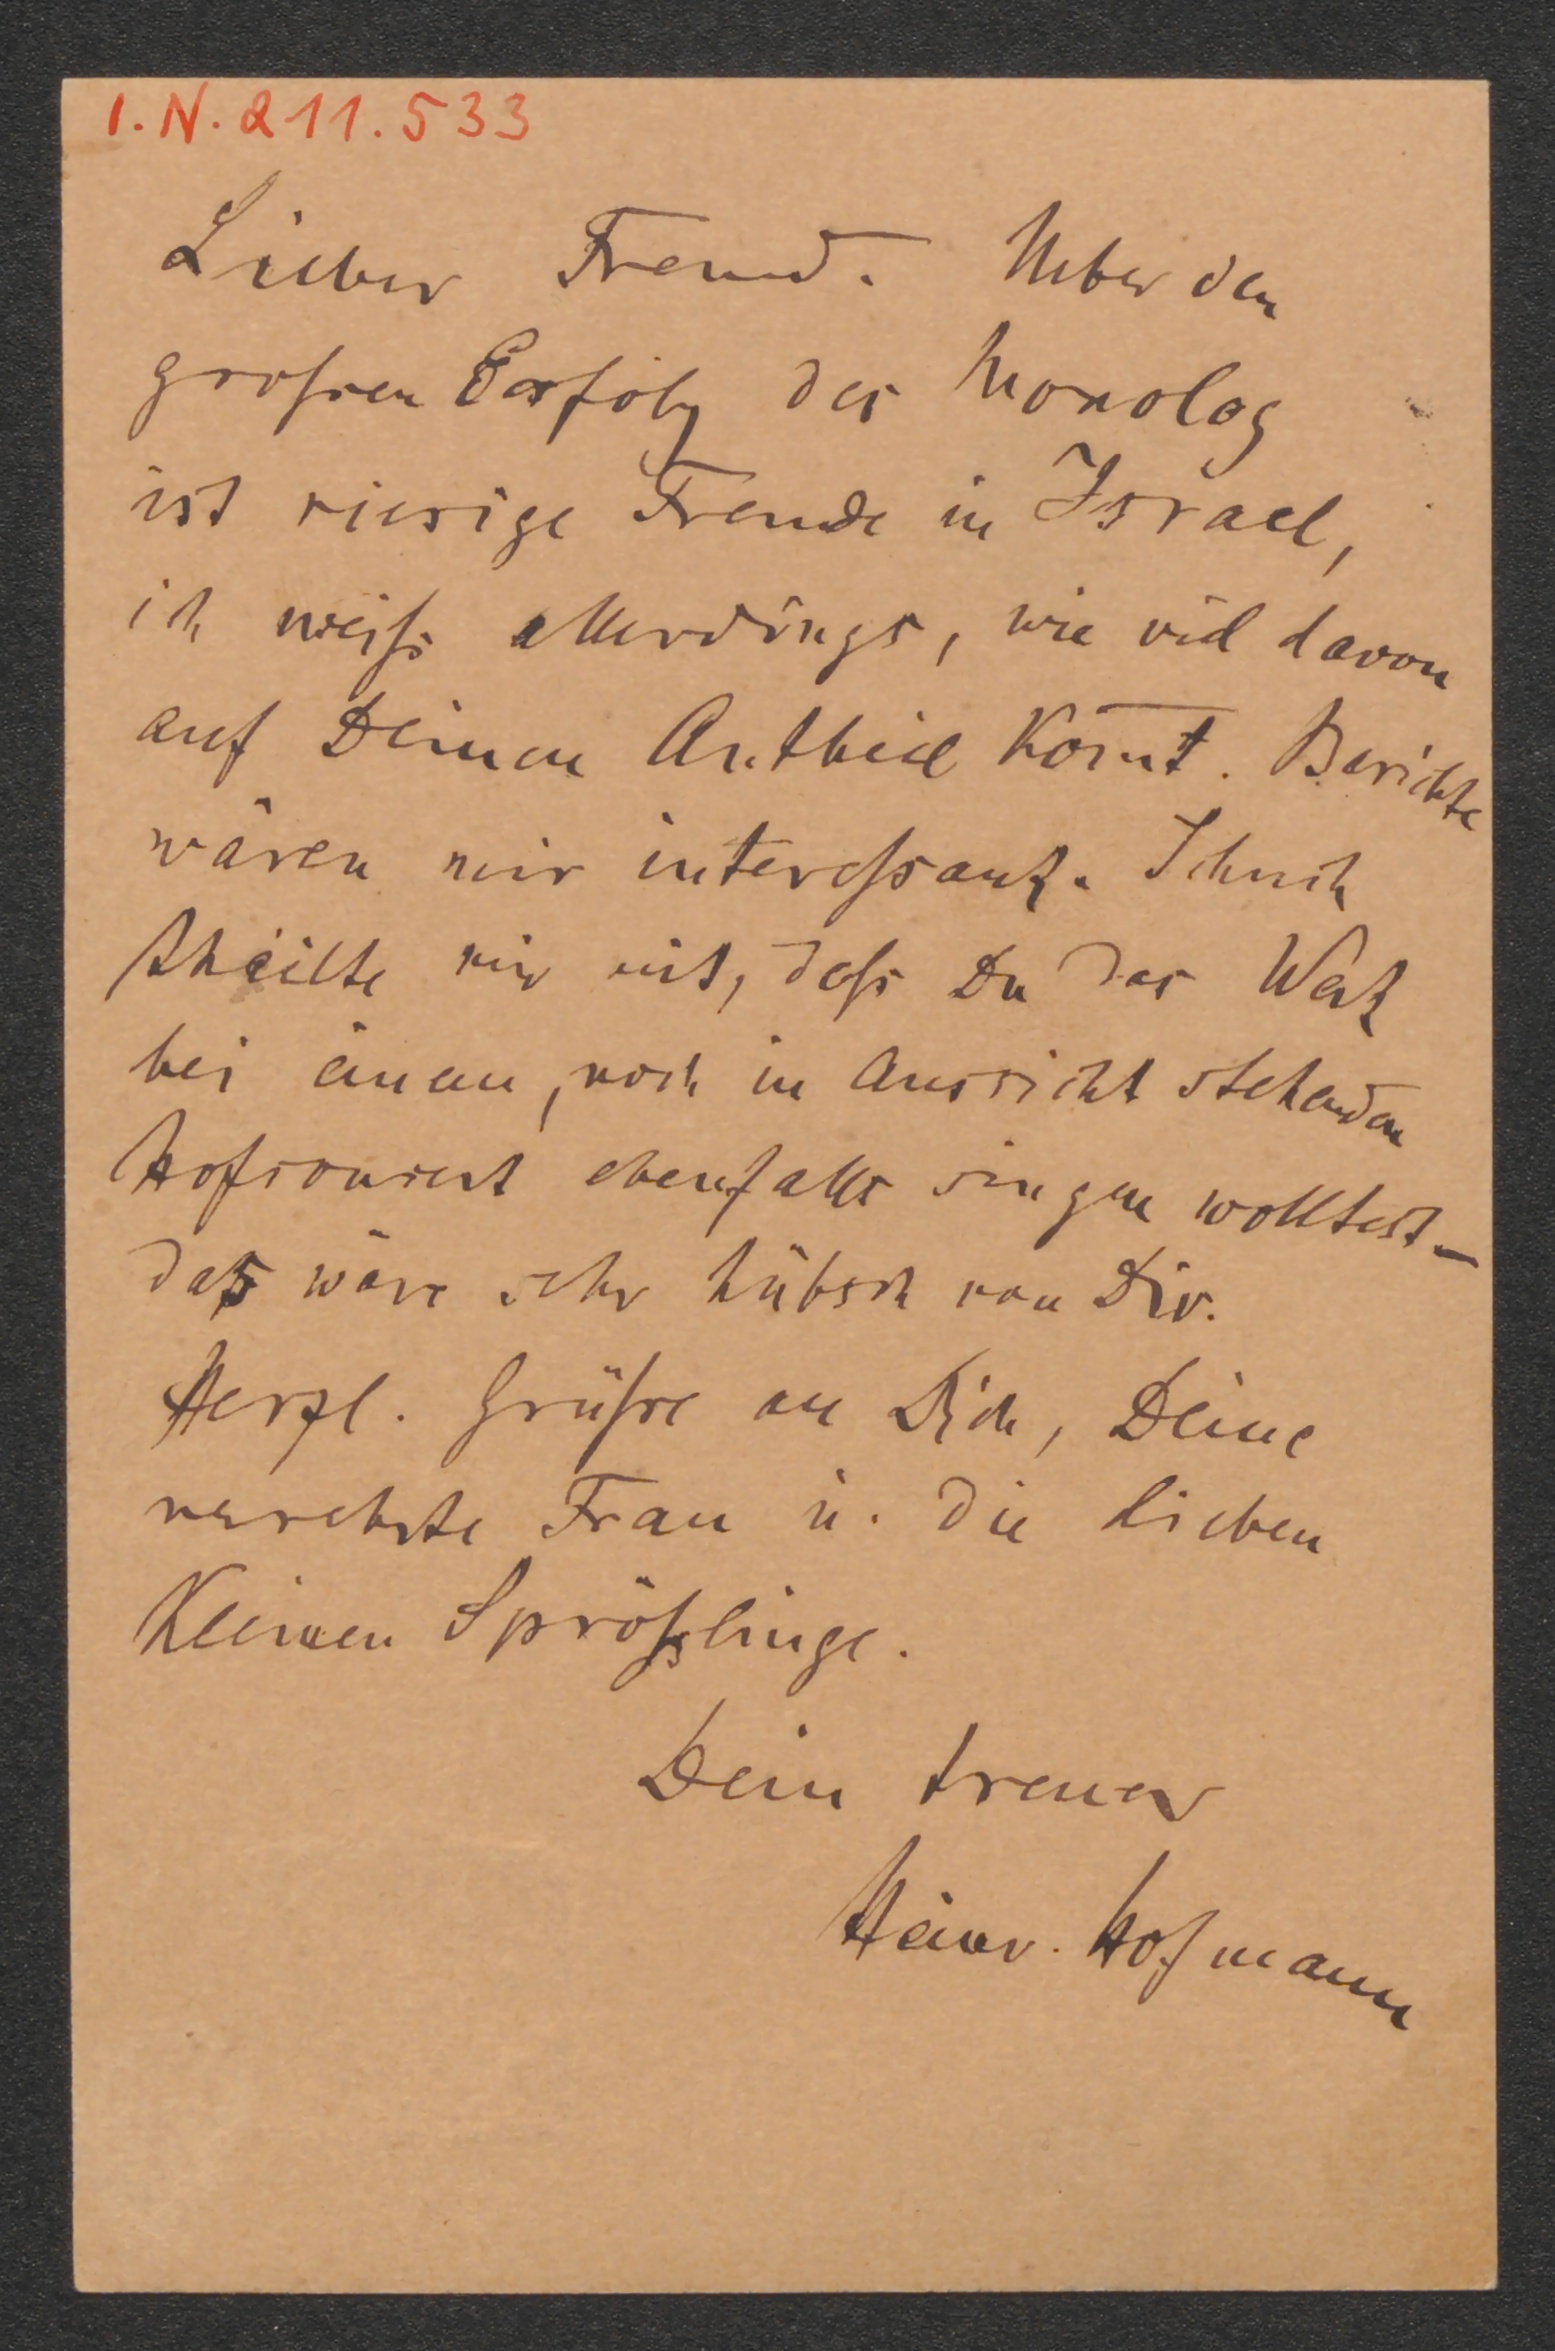 I.N. 211.533
Lieber Freund. Ueber den
grossen Erfolg des Monolog
ist riesige Freude in Israel,
ich weiss allerdings, wie viel davon
auf Deinen Antheil kom̄t. Berichte
wären mir interessant.
theilte mir mit, dass Du das Werk
bei einem, noch in Aussicht stehenden
Hofconcert ebenfalls singen wolltest –
das wäre sehr hübsch von Dir.
Herzl. Grüsse an Dich, Deine
verehrte Frau u. die lieben
kleinen Sprösslinge.
Dein treuer
Heinr. Hofmann